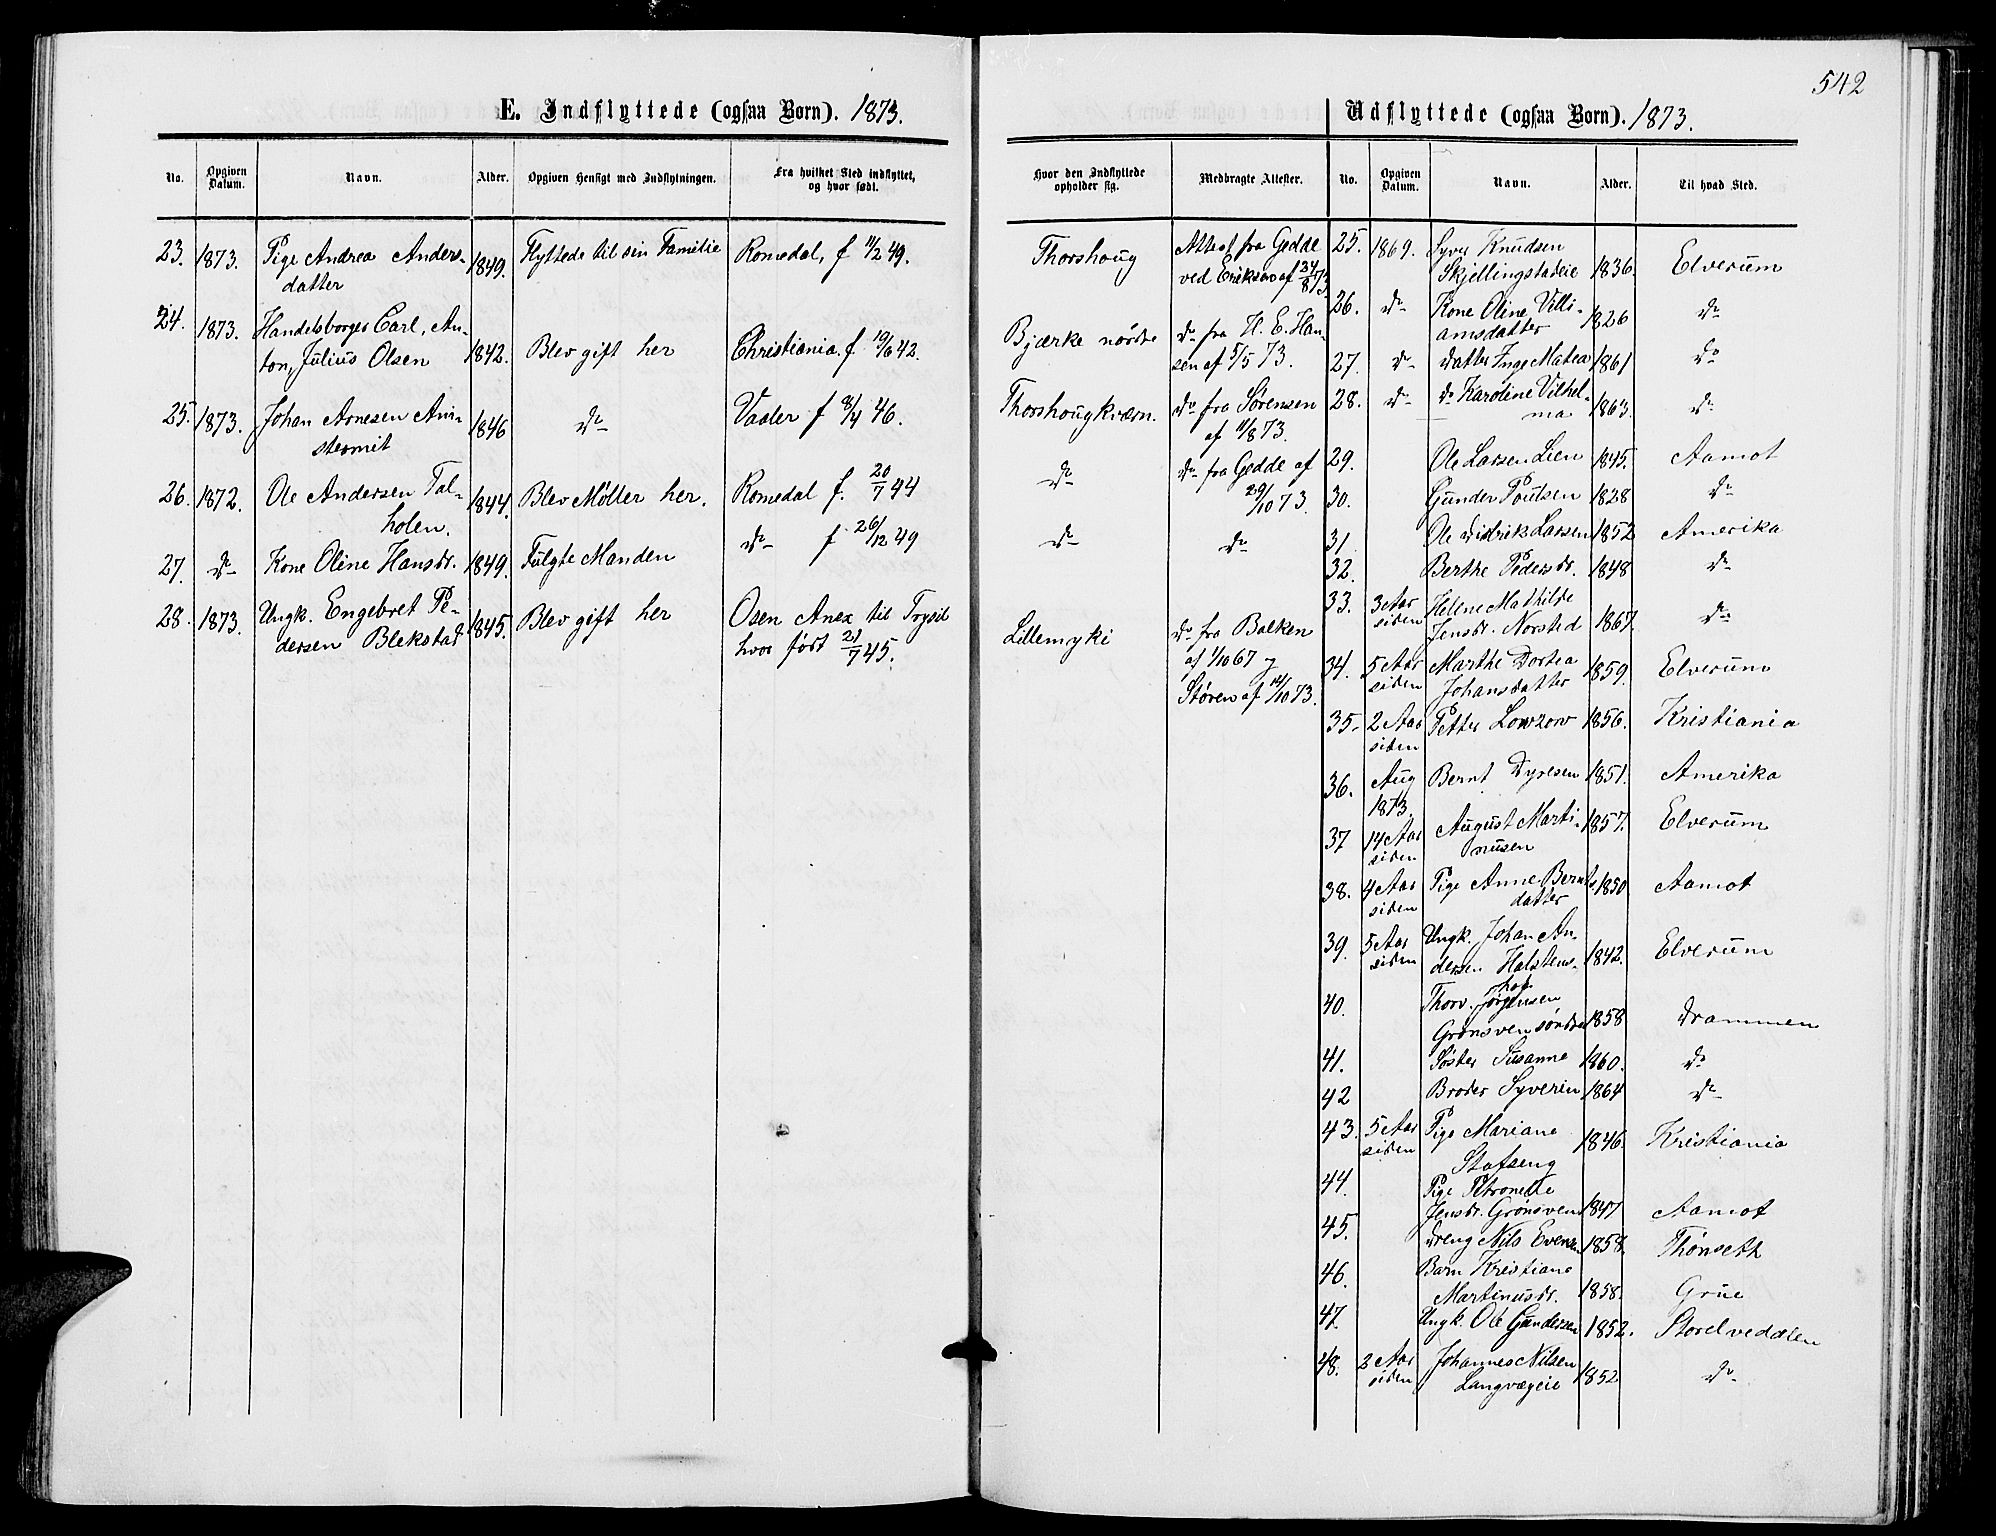 542
E. Indflyttede (ogsaa Børn). 1873.
No. Opgiven Datum. Navn. Alder. Opgiven Hensigt med Indflytningen. Fra hvilket Sted indflyttet, og hvor født.
23. 1873. Pige Andrea Anders-
datter 1849. Flyttede til sin Familie Romedal, f 11/2 49.
24. 1873. Handelsborger Carl, An-
ton, Julius Olsen 1842. Blev gift her Christiania. f 19/6 42.
25. 1873. Johan Arnesen
1846 do Vaaler f 8/4 46.
26. 1872. Ole Andersen Tal-
holen. 1844. Blev Møller her. Romedal f. 20/7 44
27. do Kone Oline Hansdr. 1849. Fulgte Manden do f 26/12 49
28. 1873. Ungk. Engebret Pe-
dersen Blekstad 1845. Blev gift her Osen Anex til Trysil
hvor født 21/7 45.
Udflyttede (ogsaa Børn). 1873.
Hvor den Indflyttede opholder sig. Medbragte Attester. No. Opgiven Datum. Navn. Alder. Til hvad Sted.
Thorshoug Attest fra Gedde
ved Eriksen af 24/8 73
Bjærke nørdre do fra H. E. Han-
sen af 5/5 73.
Thorshougkværn. do fra Sørensen
af 11/8 73.
do do fra Gedde af
29/10 73.
do do
Lillemyki do fra Balken
af 1/10 67 og
Støren af 14/10 73.
25. 1869. Syver Knudsen
Skjellingstadeie 1836. Elverum
26. do Kone Oline Villi-
amsdatter 1826 do
27. do Datter Inge Matea 1861 do
28. do do Karoline Vilhel-
ma 1863. do
29. Ole Larsen Lien 1845. Aamot
30. Gunder Poulsen 1828 do
31 Ole Didrik Larsen 1852 Amerika
32. Berthe Pedersdr. 1848 do
33. 3 Aar siden Helene Mathilde
Jensdr. Norstad 1867. do
34. 5 Aar siden Marthe Dortea
Johansdatter 1859. Elverum
35. 2 Aar siden Petter Lowzow 1856. Kristiania
36. Aug 1873. Bernt Dyresen 1851. Amerika
37 14 Aar siden August Marti-
nusen 1857. Elverum
38. 4 Aar siden Pige Anne Bernts
datter 1850 Aamot
39. 5 Aar siden Ungk. Johan An-
dersen Halstens-
hof 1842. Elverum
40. Thorv. Jørgensen
Grønsven søndre 1858 Drammen
41. Søster Susanne 1860. do
42 Broder Syverin 1864 do
43. 5 Aar siden Pige Mariane
Stafseng 1846. Kristiania
44. Pige Petronelle
Jensdr. Grønsven 1847 Aamot
45. Dreng Nils Evensen 1858. Thønseth
46. Barn Kristiane
Martinusdr. 1858. Grue
47. Ungk. Ole Gundersen 1852. Storelvedalen
48. 2 Aar siden Johannes Nilsen
Langvægeie 1852 do